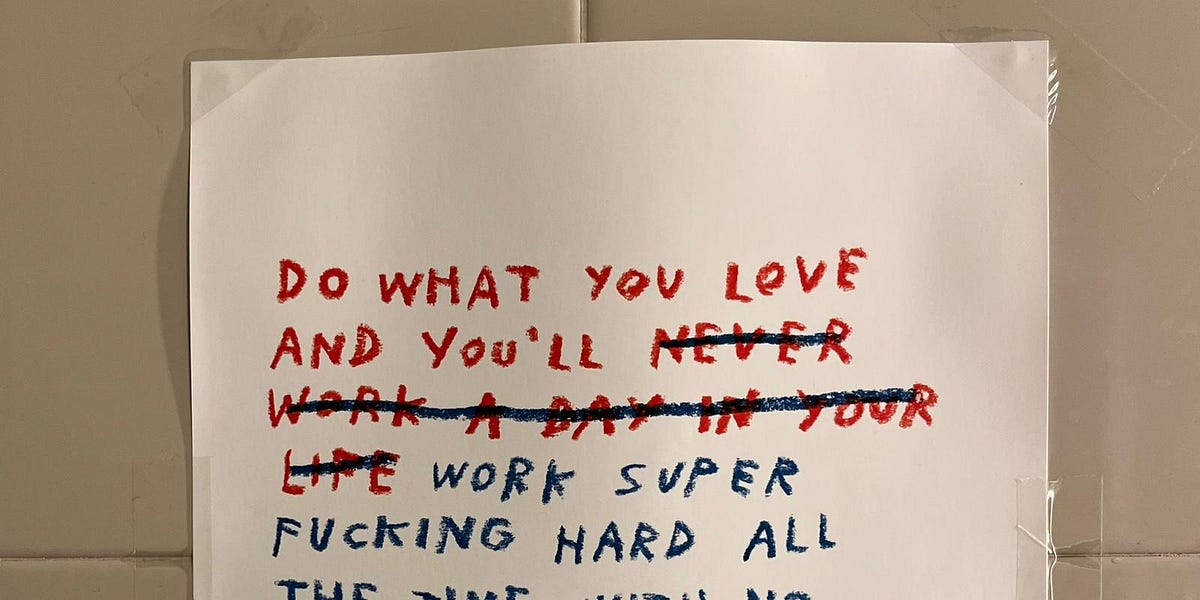 DO WHAT YOU LOVE
AND YOU'LL NEVER
WORK A DAY IN YOUR
LIFE WORK SUPER
FUCKING HARD ALL
THE TIME WITH NO